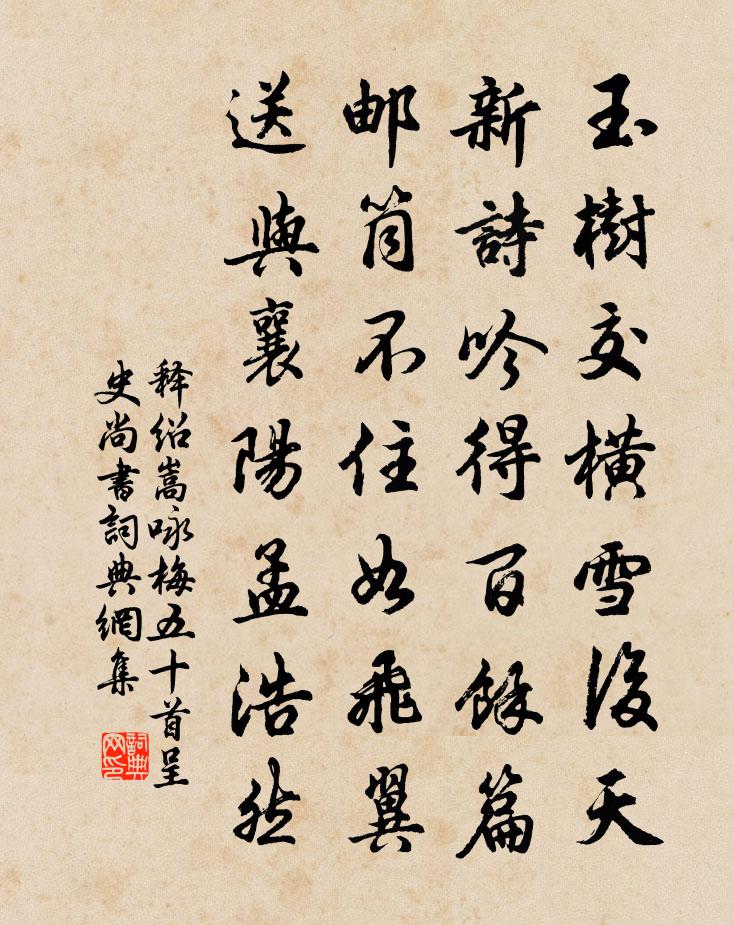 玉樹交橫雪後天
新詩吟得百餘篇
郵筒不住如飛翼
送與襄陽孟浩然
釋紹嵩咏梅五十首呈
史尚書詞典網集
詞典网印